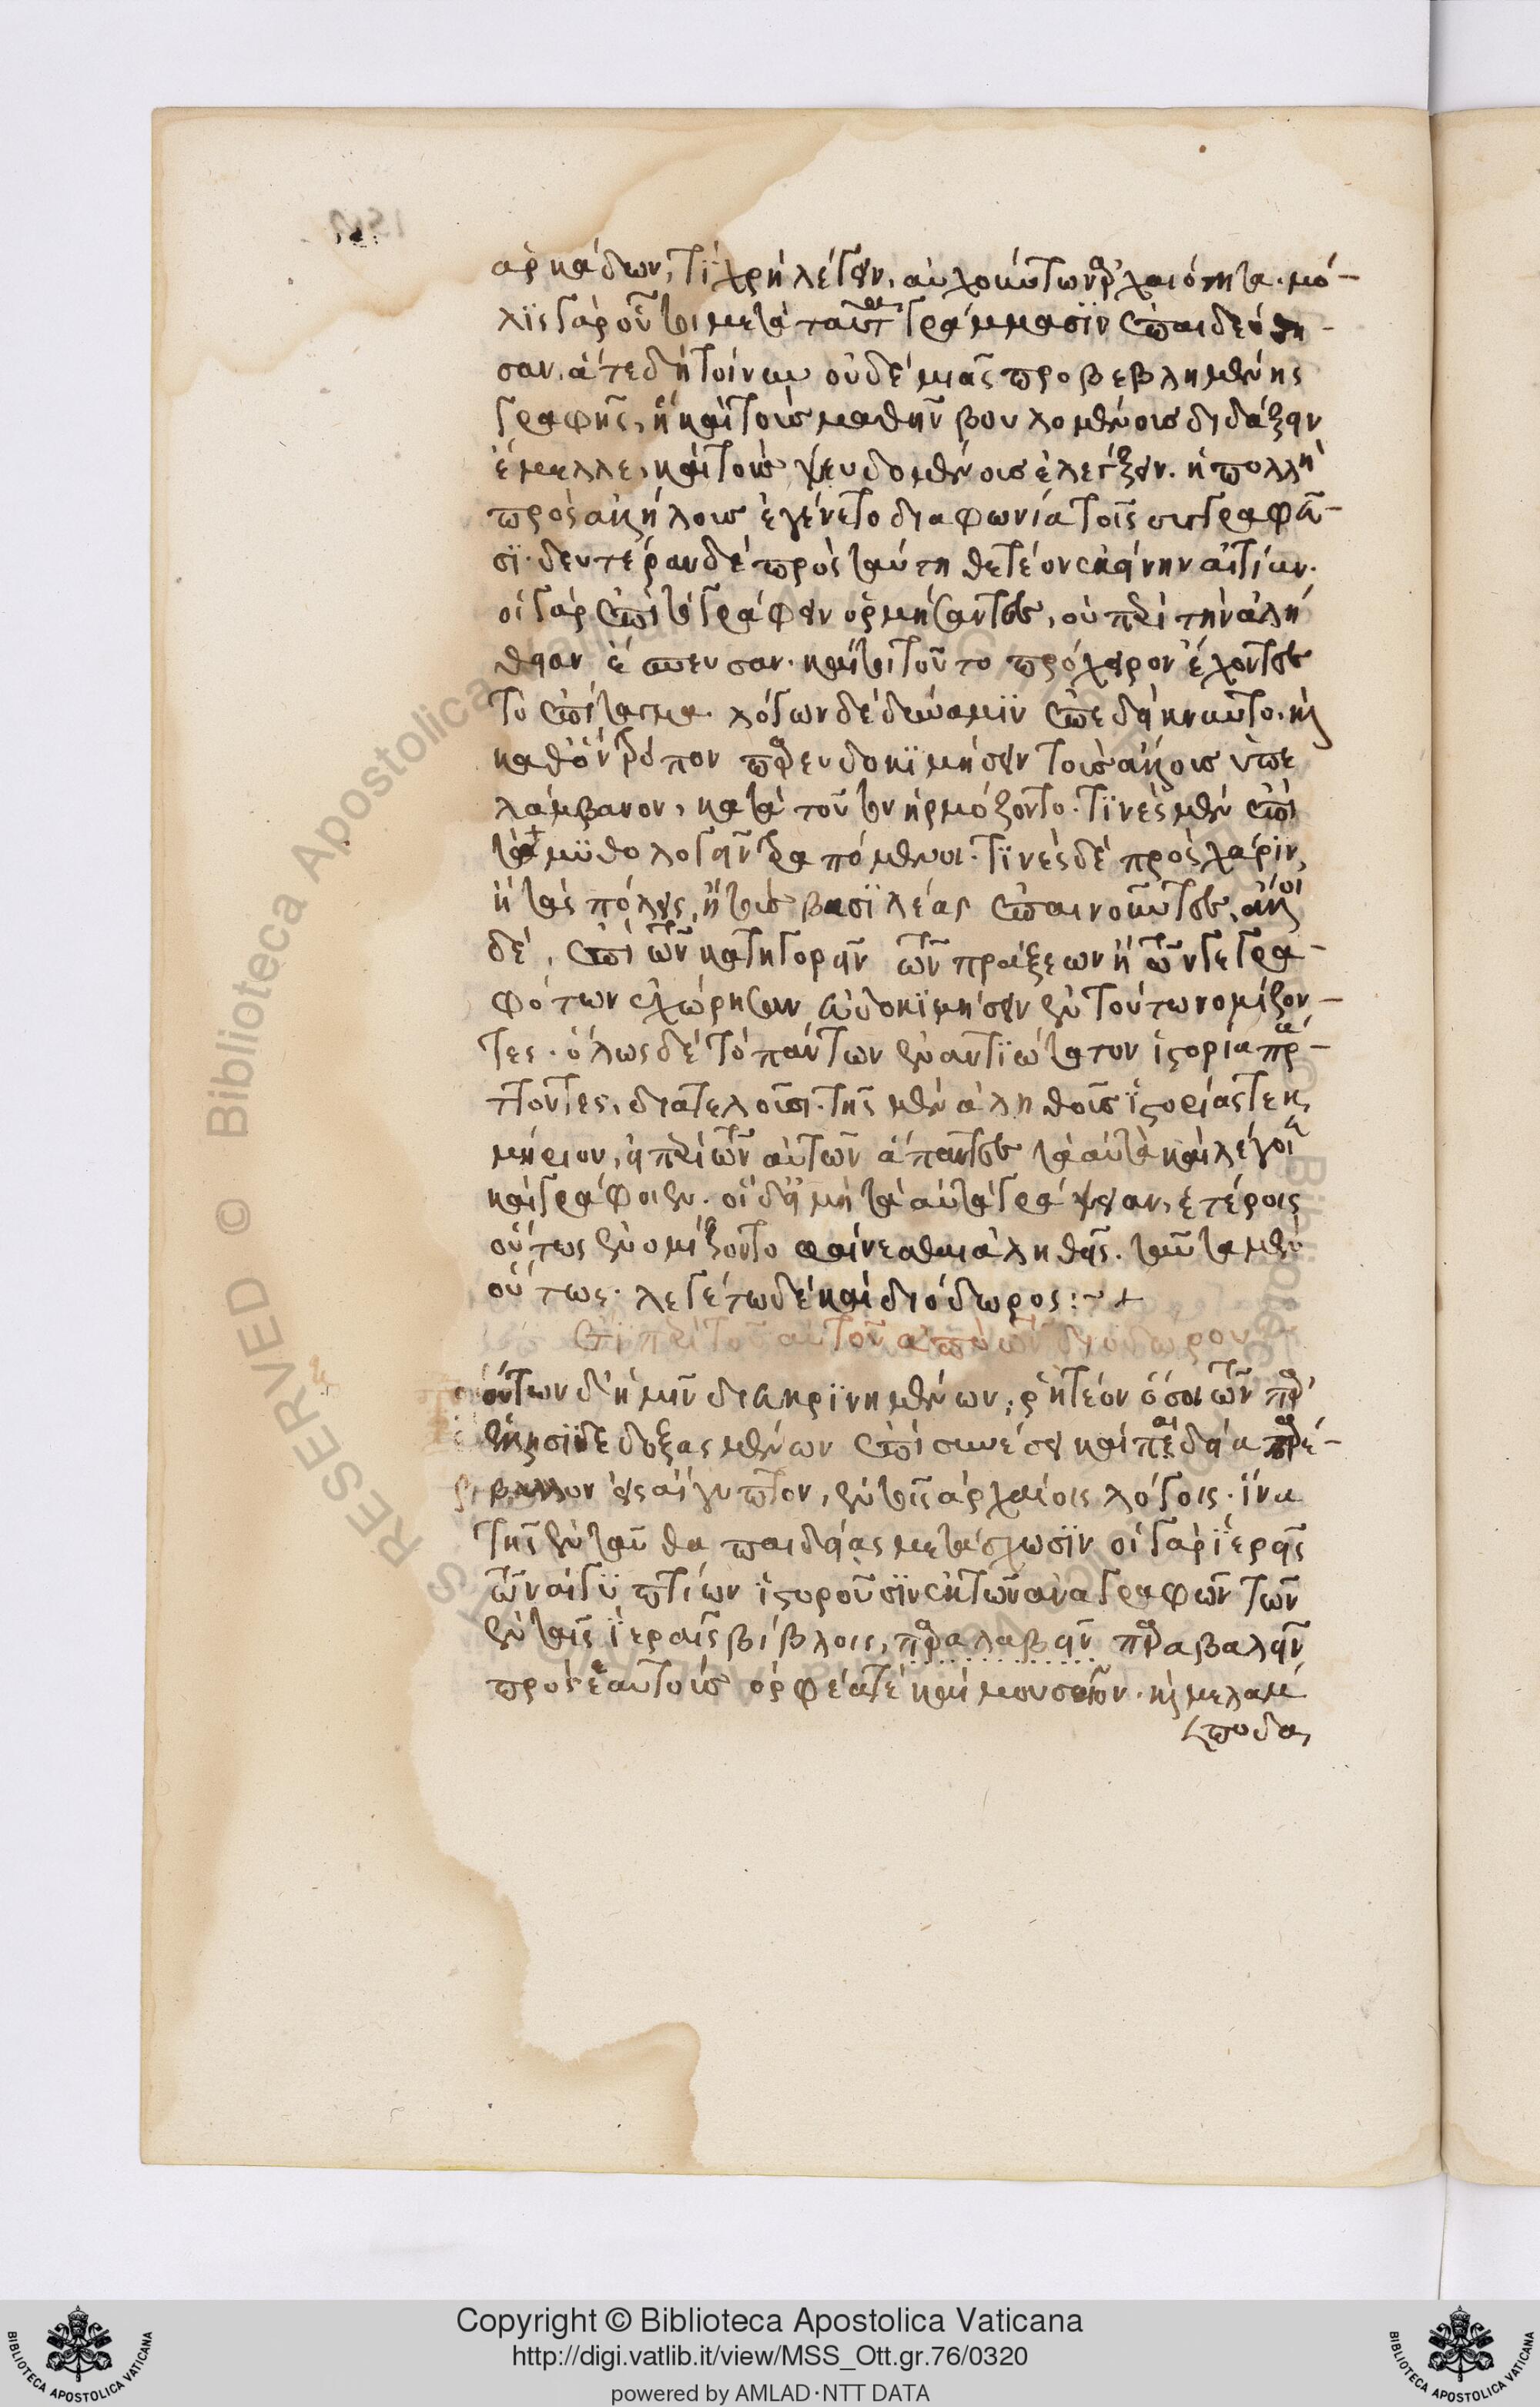 ἀρκάδων, τί χρὴ λέγειν, αὐχούντων ἀρχαιότητα. μό-
λις γὰρ οὗτοι μετὰ ταῦτα γράμμασιν ἐπαιδεύθη-
σαν. ἅτε δὴ τοίνυν οὐδεμιᾶς προβεβλημένης
γραφῆς, ἣ καὶ τοὺς μαθεῖν βουλομένους διδάξειν
ἔμελλε, καὶ τοὺς ψευδομένους ἐλέγξειν. ἡ πολλὴ
πρὸς ἀλλήλους ἐγένετο διαφωνία τοῖς συγγραφεῦ-
σι. δευτέραν δὲ πρὸς ταύτη θετέον ἐκείνην αἰτίαν.
οἱ γὰρ ἐπὶ τὸ γράφειν ὁρμήσαντες, οὐ περὶ τὴν ἀλή
θειαν ἔσπευσαν. καίτοι τοῦτο πρόχειρον ἔχοντες
τὸ ἐπίταγμα. λόγων δὲ δύναμιν ἐπεδείκνυντο. καὶ
καθ' ὃν τρόπον παρευδοκιμήσειν τοὺς ἄλλους ὑπε
λάμβανον, κατὰ τοῦτον ἡρμόζοντο. τινὲς μὲν ἐπὶ
τὸ μυθολογεῖν τραπόμενοι. τινὲς δὲ πρὸς χάριν,
ἢ τὰς πόλεις, ἢ τοὺς βασιλέας ἐπαινοῦντες, ἄλλοι
δὲ, ἐπὶ τῶν κατηγορεῖν τῶν πράξεων ἢ τῶν γεγρα-
φότων ἐχώρησαν ἐυδοκιμήσειν ἐν τούτω νομίζον-
τες. ὅλως δὲ τὸ πάντων ἐναντιώτατον ἱστορία πρά-
ττοντες, διατελοῦσι. τῆς μὲν ἀληθοῦς ἱστορίας τεκ
μήριον, εἰ περὶ τῶν αὐτῶν ἅπαντες ταὐτὰ καὶ λέγοιεν
καὶ γράφοιεν. οἱ δ' εἰ μὴ ταὐτὰ γράψειαν, ἑτέροις
οὕτως ἐνομίζοντο φαίνεσθαι ἀληθεῖς. ταῦτα μὲν
οὕτως. λεγέτω δὲ καὶ διόδωρος :~ +
Ἔτι περὶ τοῦ αὐτοῦ ἀπὸ τῶν διοδώρου
τούτων δ' ἡμῖν διευκρινημένων, ῥητέον ὅσοι τῶν παρ'
ἕλλησι δεδοξασμένων ἐπὶ συνέσει καὶ παιδεία παρέ-
βαλλον εἰς αἴγυπτον, ἐν τοῖς ἀρχαίοις λόγοις. ἵνα
τῆς ἐνταῦθα παιδείας μετάσχωσιν οἱ γὰρ ἱερεῖς
τῶν αἰγυπτίων ἱστοροῦσιν ἐκ τῶν ἀναγραφῶν τῶν
ἐν ταῖς ἱεραῖς βίβλοις, παραλαβεῖν παραβαλεῖν
πρὸς ἑαυτοὺς ὀρφέα τὲ καὶ μουσαῖον. καὶ μελάμ
ποδα,
Copyright © Biblioteca Apostolica Vaticana
http://digi.vatlib.it/view/MSS_Ott.gr.76/0320
powered by AMLAD·NTT DATA